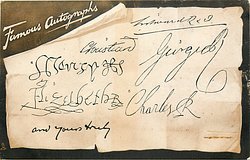 Famous Autographs
Christian
George R
Elizabeth R
Charles R
and yours truly